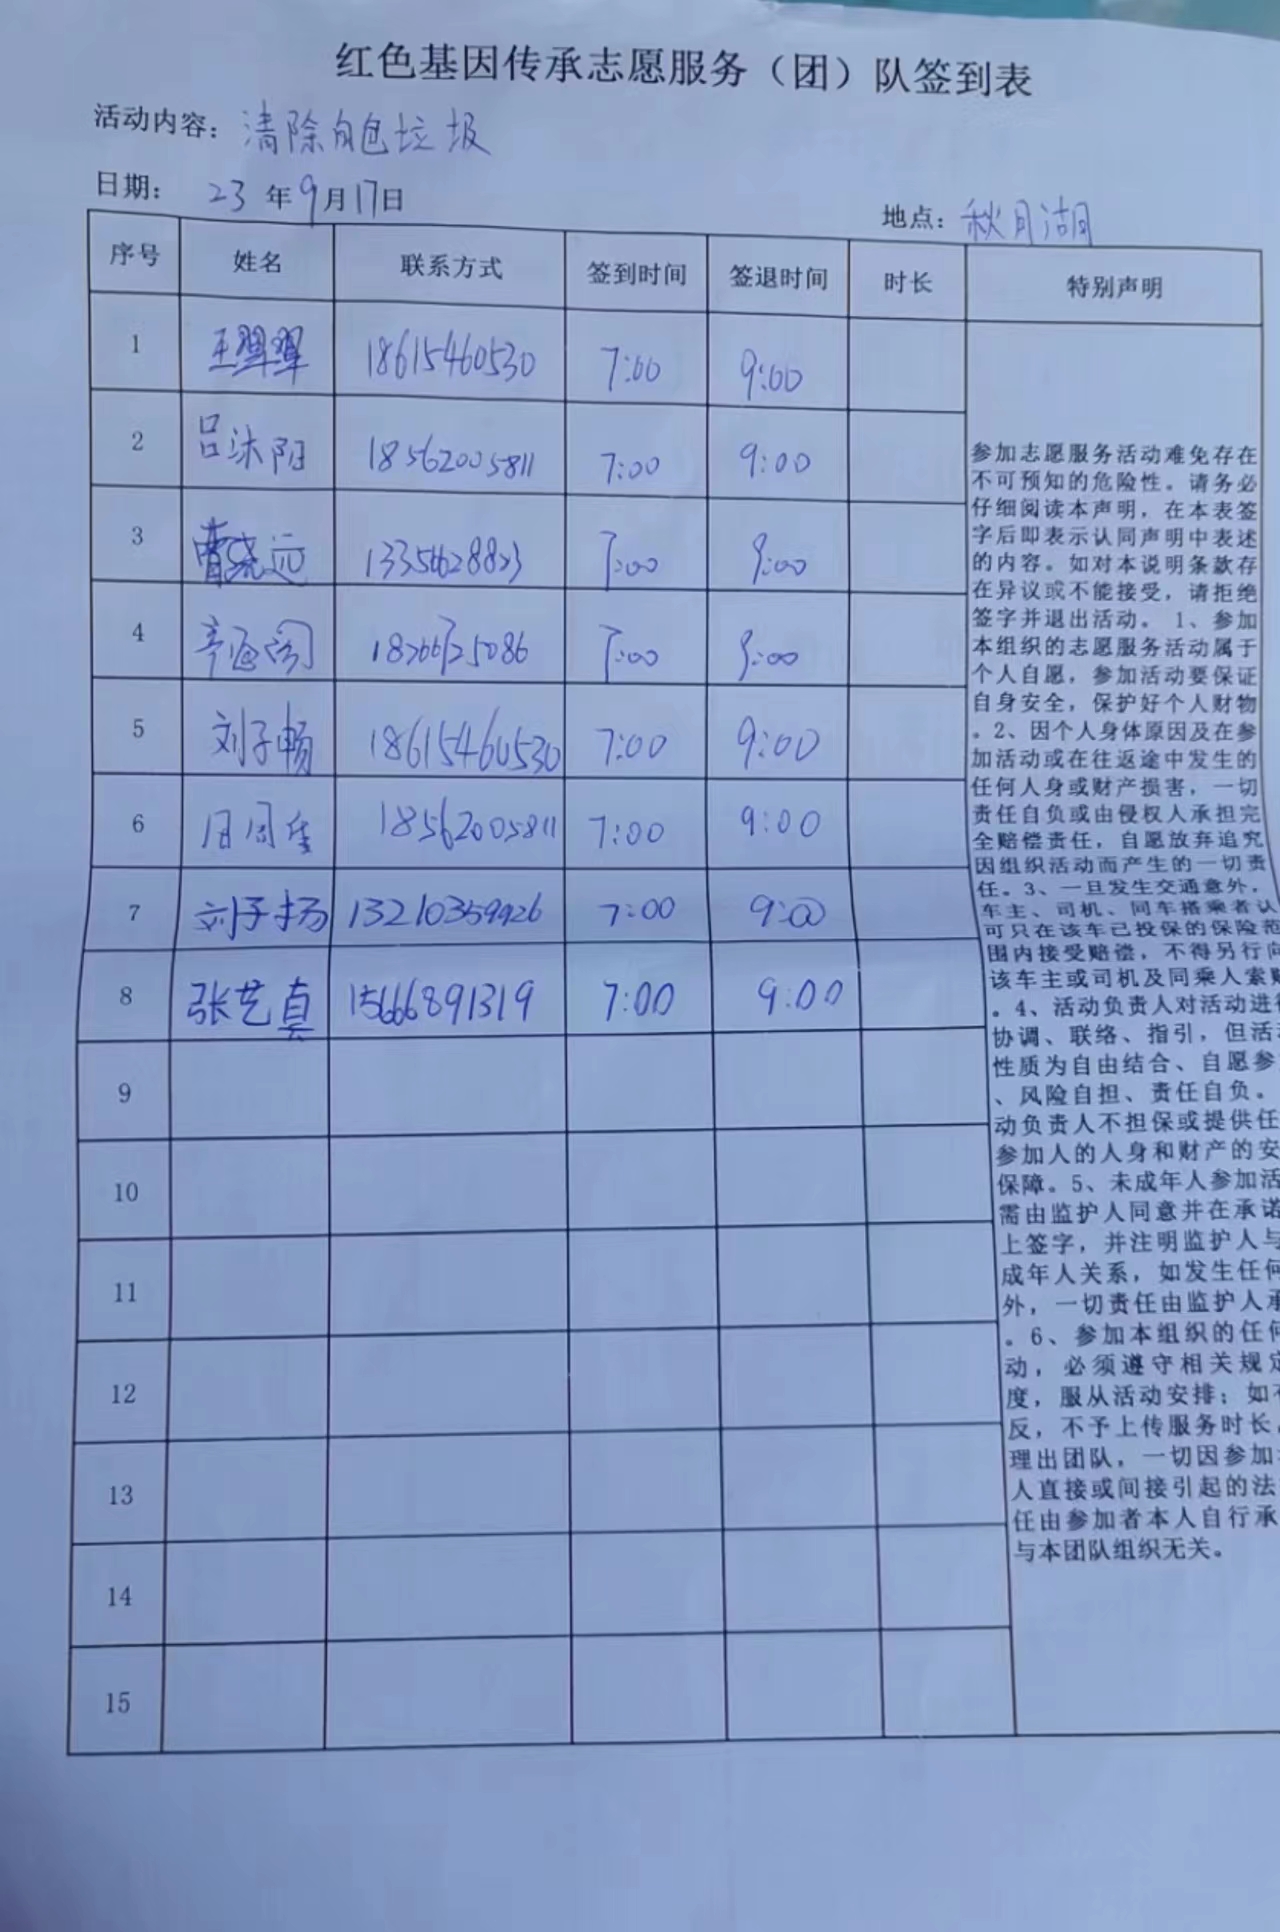 红色基因传承志愿服务（团）队签到表
活动内容：清除白色垃圾
日期： 23 年 9 月 17 日
地点：秋月湖
序号 姓名 联系方式 签到时间 签退时间 时长 特别声明
1 王翠翠 18615460530 7:00 9:00
2 吕沐阳 18562005811 7:00 9:00
3 曹晓远 7:00 9:00
4 7:00 9:00
5 刘子畅 18615460530 7:00 9:00
6 18562005811 7:00 9:00
7 刘子扬 13210359926 7:00 9:00
8 张艺真 15666891319 7:00 9:00
9
10
11
12
13
14
15
参加志愿服务活动难免存在
不可预知的危险性。请务必
仔细阅读本声明，在本表签
字后即表示认同声明中表述
的内容。如对本说明条款存
在异议或不能接受，请拒绝
签字并退出活动。1、参加
本组织的志愿服务活动属于
个人自愿，参加活动要保证
自身安全，保护好个人财物
。2、因个人身体原因及在参
加活动或在往返途中发生的
任何人身或财产损害，一切
责任自负或由侵权人承担完
全赔偿责任，自愿放弃追究
因组织活动而产生的一切责
任。3、一旦发生交通意外，
车主、司机、同车搭乘者认
可只在该车已投保的保险范
围内接受赔偿，不得另行向
该车主或司机及同乘人索赔
。4、活动负责人对活动进行
协调、联络、指引，但活动
性质为自由结合、自愿参
、风险自担、责任自负。
动负责人不担保或提供任
参加人的人身和财产的安
保障。5、未成年人参加活
需由监护人同意并在承诺
上签字，并注明监护人与
成年人关系，如发生任何
外，一切责任由监护人承
。6、参加本组织的任何
动，必须遵守相关规定
度，服从活动安排；如
反，不予上传服务时长，
理出团队，一切因参加
人直接或间接引起的法
任由参加者本人自行承
与本团队组织无关。